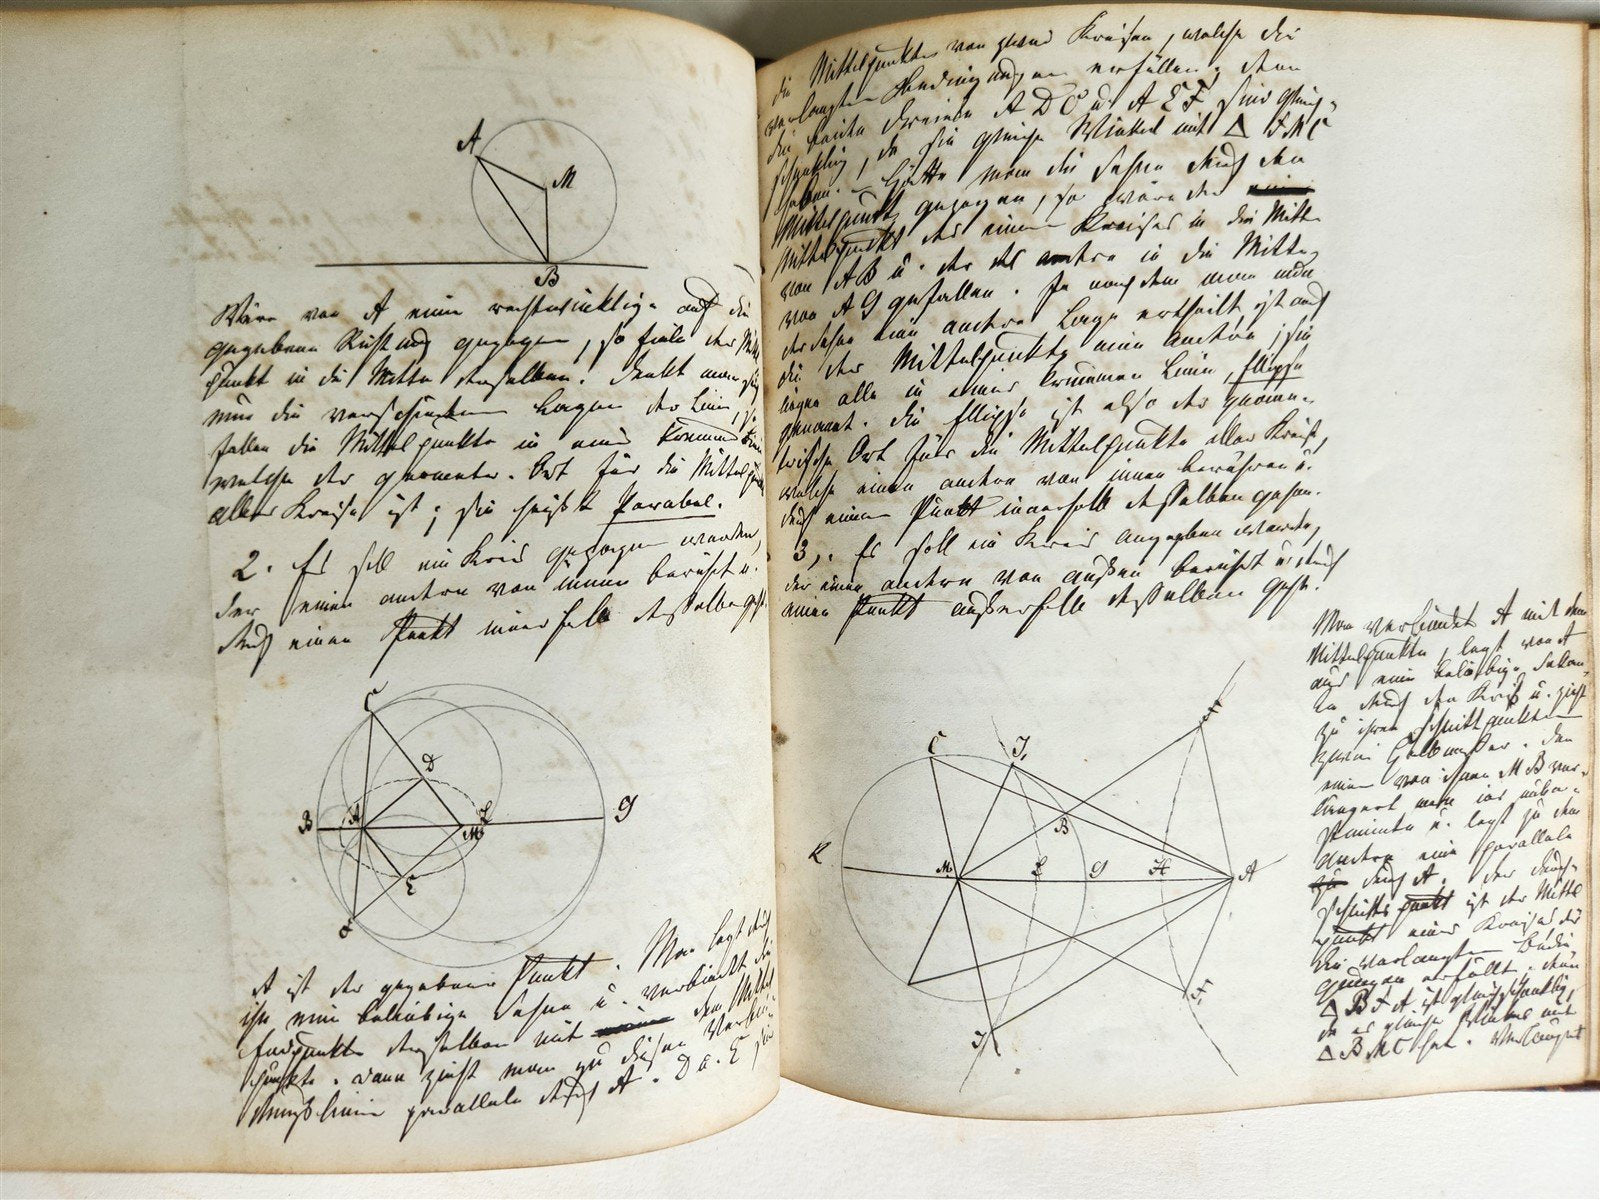 A
M
B
Wäre von A eine rechtwinklige auf die
gegebene Richtung gezogen, so fiele der Mittel
punkt in die Mitte derselben. Denkt man sich
nun die verschiedenen Lagen der Linie, so
fallen die Mittelpunkte in eine krumme Linie
welche der geometr. Ort für die Mittelpunkte
aller Kreise ist; sie heißt Parabel.
2. Es soll ein Kreis gezogen werden,
der einen andren von innen berührt u.
durch einen Punkt innerhalb desselben geht.
C
D
B
A
M
G
E
A ist der gegebene Punkt. Man legt durch
ihn eine beliebige Sehne u. verbindet die
Endpunkte derselben mit dem Mittel
punkte. Dann zieht man zu diesen Verbin
dungslinien parallele durch A. D u. E sind
die Mittelpunkte von zwei Kreisen, welche die
verlangten Bedingungen erfüllen; denn
die beiden Dreiecke A D C u. A E F sind gleich-
schenklig, da sie gleiche Winkel mit Δ F M C
haben. Hätte man die Sehne durch den
Mittelpunkt gezogen, so wäre der
Mittelpunkt des einen Kreises in die Mitte
von A B u. der des andren in die Mitte
von A G gefallen. Je nachdem man nun
der Sehne eine andre Lage ertheilt ist auch
die der Mittelpunkte eine andre; sie
liegen alle in einer krummen Linie, Ellipse
genannt. Die Ellipse ist also der geome-
trische Ort für die Mittelpunkte aller Kreise,
welche einen andren von innen berühren u.
durch einen Punkt innerhalb desselben gehen.
3,. Es soll ein Kreis angegeben werden,
der einen andren von außen berührt u. durch
einen Punkt außerhalb desselben geht.
C
J,
B
K
M
E
G
H
A
J
Man verbindet A mit dem
Mittelpunkte, legt von A
aus eine beliebige Sekan-
te durch den Kreis u. zieht
zu ihren Schnittpunkten
zwei Halbmesser. Den
einen von ihnen M B ver-
längert man ins unbe-
stimmte u. legt zu dem
andren eine parallele
durch A. Der Durch-
schnittspunkt ist der Mittel
punkt eines Kreises der
die verlangten Bedin
gungen erfüllt. Denn
Δ B F A ist gleichschenklig,
da es gleiche Winkel mit
Δ B M C hat. Verlängert